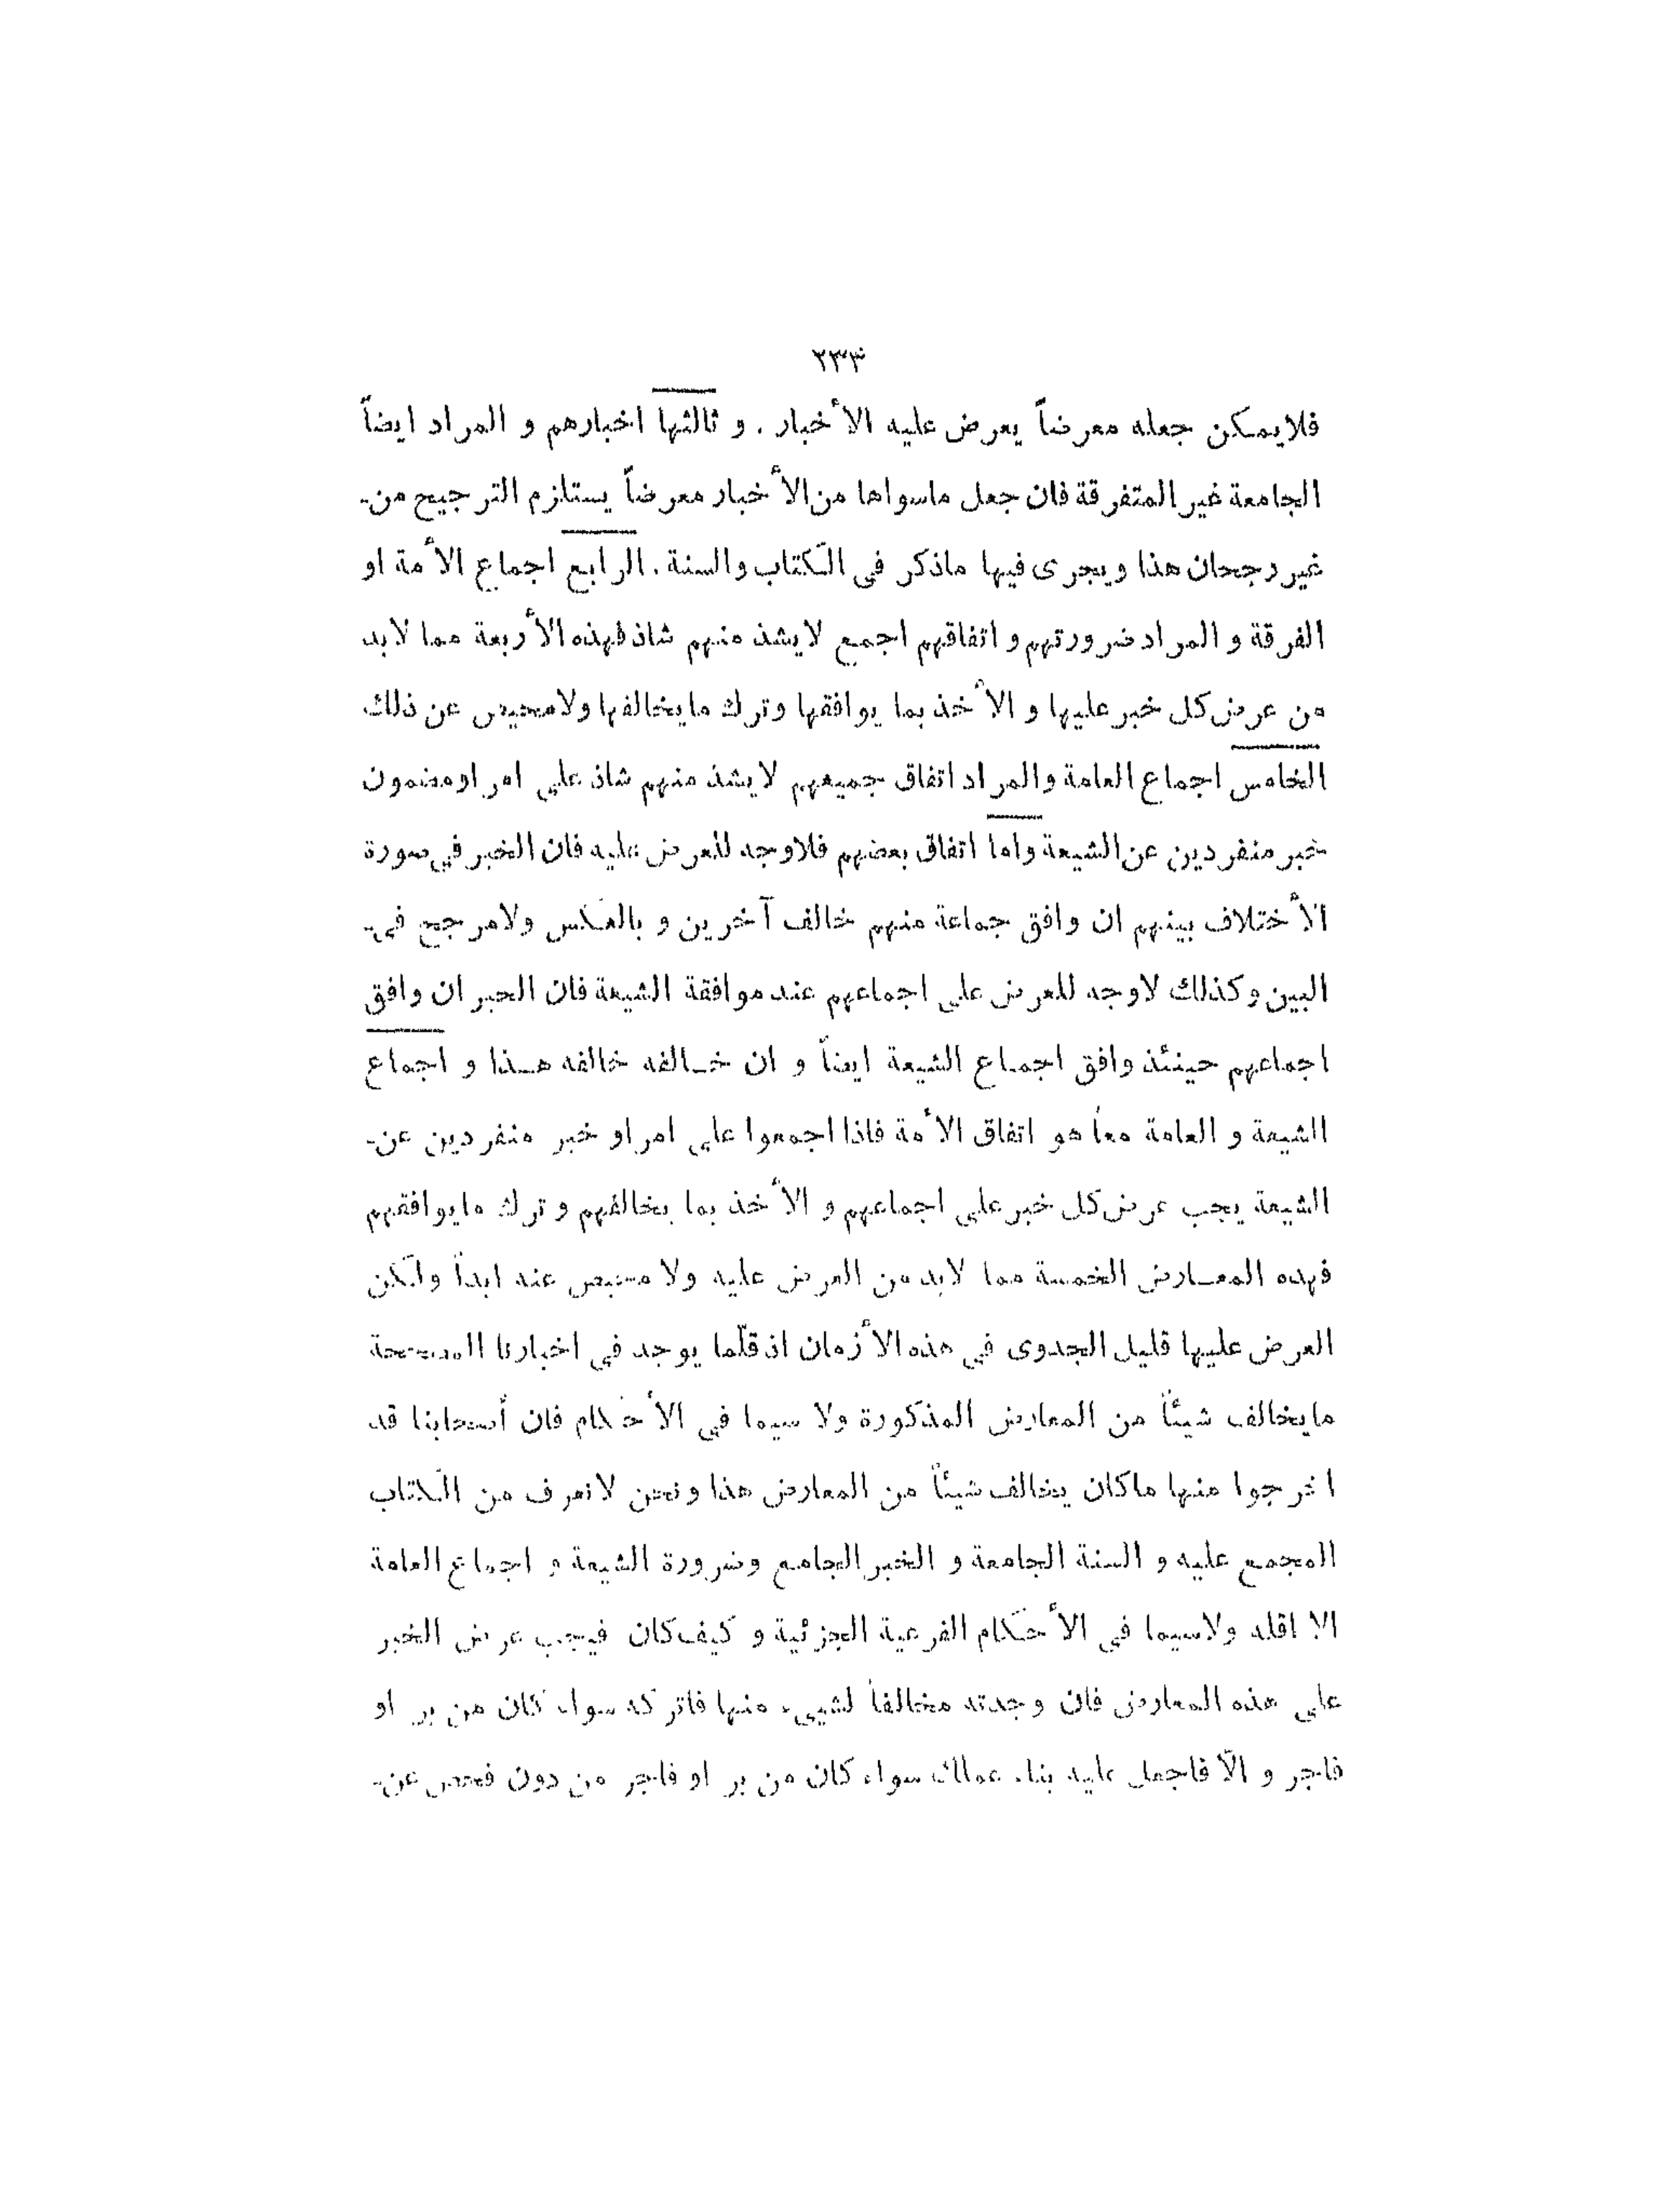 ٢٣٣
فلايمكن جعله معرضاً يعرض عليه الأخبار . و ثالثها اخبارهم و المراد ايضاً
الجامعة غير المتفرقة فان جعل ماسواها من الأخبار معرضاً يستلزم الترجيح من-
غير رجحان هذا ويجرى فيها ماذكر في الكتاب والسنة . الرابع اجماع الأمة او
الفرقة و المراد ضرورتهم و اتفاقهم اجمع لايشذ منهم شاذ فهذه الأربعة مما لابد
من عرض كل خبر عليها و الأخذ بما يوافقها وترك مايخالفها ولامحيص عن ذلك
الخامس اجماع العامة والمراد اتفاق جميعهم لايشذ منهم شاذ علي امر اومضمون
خبر منفردين عن الشيعة واما اتفاق بعضهم فلاوجه للعرض عليه فان الخبر في صورة
الأختلاف بينهم ان وافق جماعة منهم خالف آخرين و بالعكس ولامرجح في-
البين وكذلك لاوجه للعرض علي اجماعهم عند موافقة الشيعة فان الخبر ان وافق
اجماعهم حينئذ وافق اجماع الشيعة ايضاً و ان خالفه خالفه هذا و اجماع
الشيعة و العامة معاً هو اتفاق الأمة فاذا اجمعوا علي امر او خبر منفردين عن-
الشيعة يجب عرض كل خبر علي اجماعهم و الأخذ بما يخالفهم و ترك مايوافقهم
فهذه المعارض الخمسة مما لابد من العرض عليه ولا محيص عنه ابداً ولكن
العرض عليها قليل الجدوى في هذه الأزمان اذ قلّما يوجد في اخبارنا المصححة
مايخالف شيئاً من المعارض المذكورة ولا سيما في الأحكام فان أصحابنا قد
اخرجوا منها ماكان يخالف شيئاً من المعارض هذا ونحن لانعرف من الكتاب
المجمع عليه و السنة الجامعة و الخبر الجامع وضرورة الشيعة و اجماع العامة
الا اقله ولاسيما في الأحكام الفرعية الجزئية و كيف كان فيجب عرض الخبر
علي هذه المعارض فان وجدته مخالفاً لشييء منها فاتركه سواء كان من بر او
فاجر و الّا فاجعل عليه بناء عملك سواء كان من بر او فاجر من دون فحص عن-